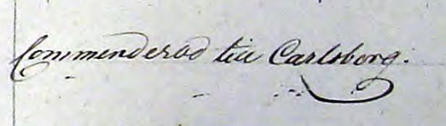 Commenderad till Carlsborg.